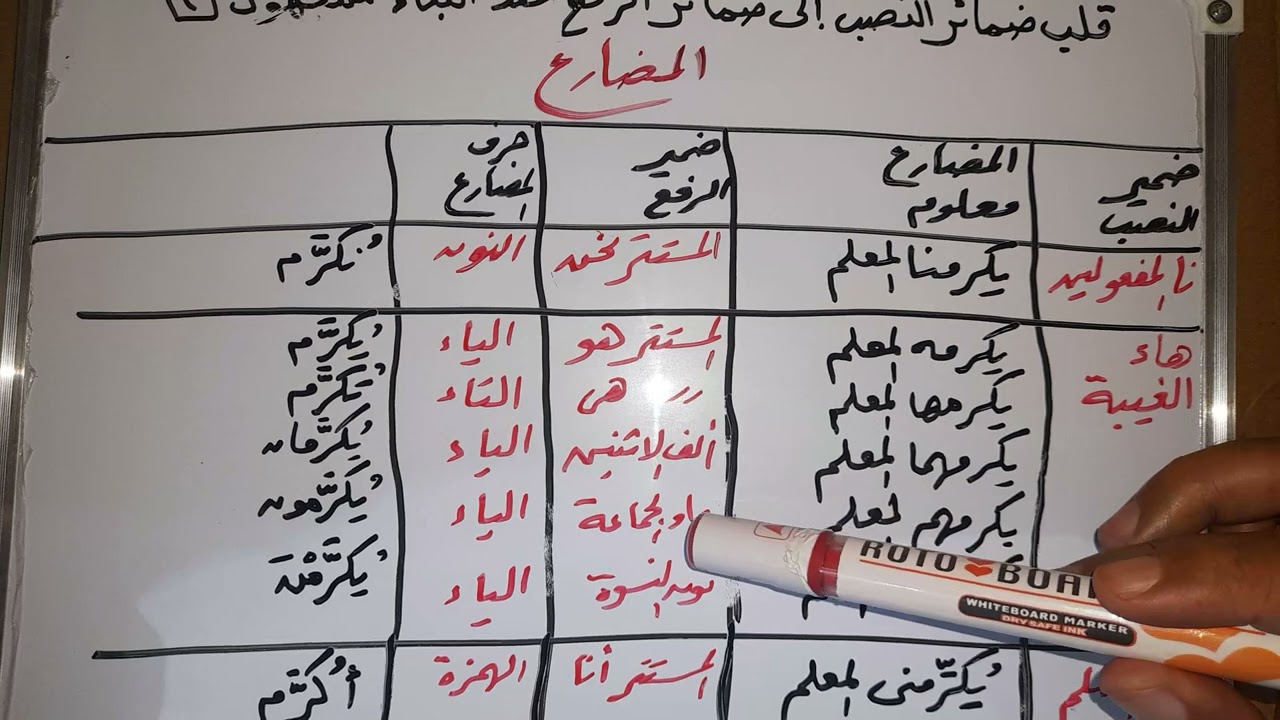 قلب ضمائر النصب إلى ضمائر الرفع عند البناء
المضارع
ضمير النصب المضارع معلوم ضمير الرفع حرف المضارع
نا المفعولين يكرمنا المعلم المستتر نحن النون نُكَرَّم
هاء الغيبة يكرمه المعلم المستتر هو الياء يُكَرَّم
يكرمها المعلم رر هي التاء تُكَرَّم
يكرمهما المعلم ألف الاثنين الياء يُكَرَّمان
يكرمهم المعلم واو الجماعة الياء يُكَرَّمون
نون النسوة الياء يُكَرَّمْنَ
يُكَرِّمنى المعلم المستتر أنا الهمزة أُكَرَّم
ROTO BOA
WHITEBOARD MARKER
DRY SAFE INK